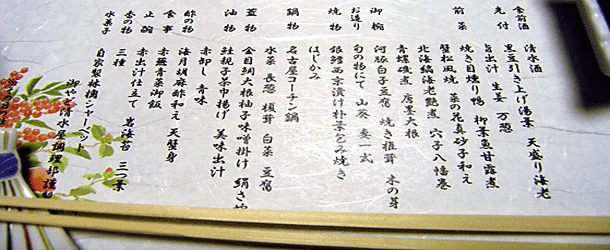 食前酒 清水酒
先付 黒豆引き上げ湯葉 天盛り海老
旨出汁 生姜 万葱
前菜 焼き目燻り鴨 柳葉魚甘露煮
蟹松風焼 菜の花真砂子和え
北海縞海老艶煮 穴子八幡巻
青螺磯煮 唐墨大根
御椀 河豚白子豆腐 焼き椎茸 木の芽
お造り 旬の物にて 山葵 妻一式
焼物 銀鱈西京漬け朴葉包み焼き
はじかみ
鍋物 名古屋コーチン鍋
水菜 長葱 榎茸 白菜 豆腐
蓋物 金目鯛大根柚子味噌掛け 絹さや
油物 鮭親子茶巾揚げ 美味出汁
赤卸し 青味
酢の物 海月胡麻酢和え 天蟹身
食事 赤蕪青菜御飯
止椀 赤出汁仕立て 岩海苔 三つ葉
香の物 三種
水菓子 自家製林檎シャーベット
御やど清水屋調理部謹製